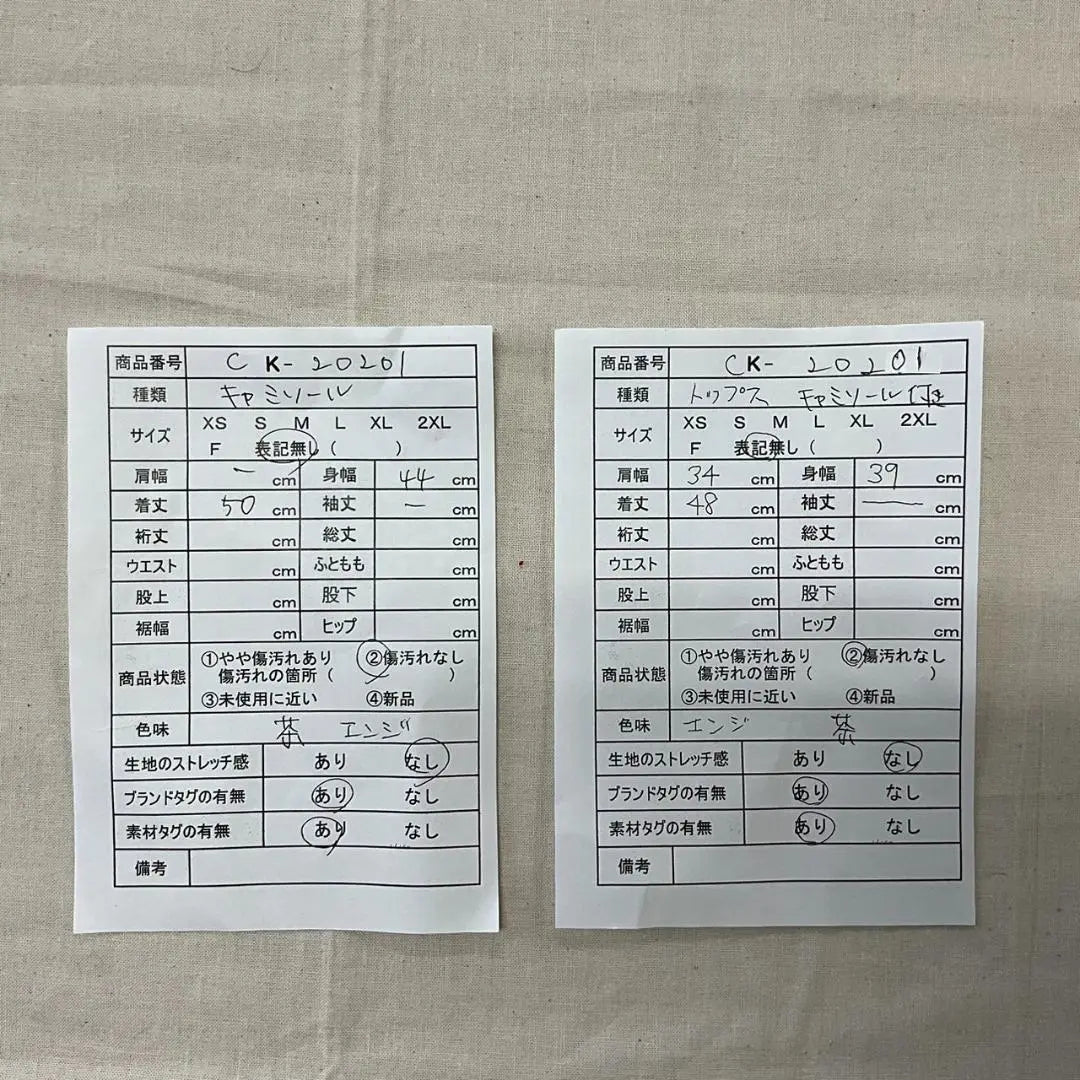 商品番号 CK-20201
種類 キャミソール
サイズ XS S M L XL 2XL
F 表記無し ( )
肩幅 - cm 身幅 44 cm
着丈 50 cm 袖丈 - cm
裄丈 cm 総丈 cm
ウエスト cm ふともも cm
股上 cm 股下 cm
裾幅 cm ヒップ cm
商品状態 ①やや傷汚れあり ②傷汚れなし
傷汚れの箇所 ( )
③未使用に近い ④新品
色味 茶 エンジ
生地のストレッチ感 あり なし
ブランドタグの有無 あり なし
素材タグの有無 あり なし
備考
商品番号 CK-20201
種類 トップス キャミソール付き
サイズ XS S M L XL 2XL
F 表記無し ( )
肩幅 34 cm 身幅 39 cm
着丈 48 cm 袖丈 - cm
裄丈 cm 総丈 cm
ウエスト cm ふともも cm
股上 cm 股下 cm
裾幅 cm ヒップ cm
商品状態 ①やや傷汚れあり ②傷汚れなし
傷汚れの箇所 ( )
③未使用に近い ④新品
色味 エンジ 茶
生地のストレッチ感 あり なし
ブランドタグの有無 あり なし
素材タグの有無 あり なし
備考